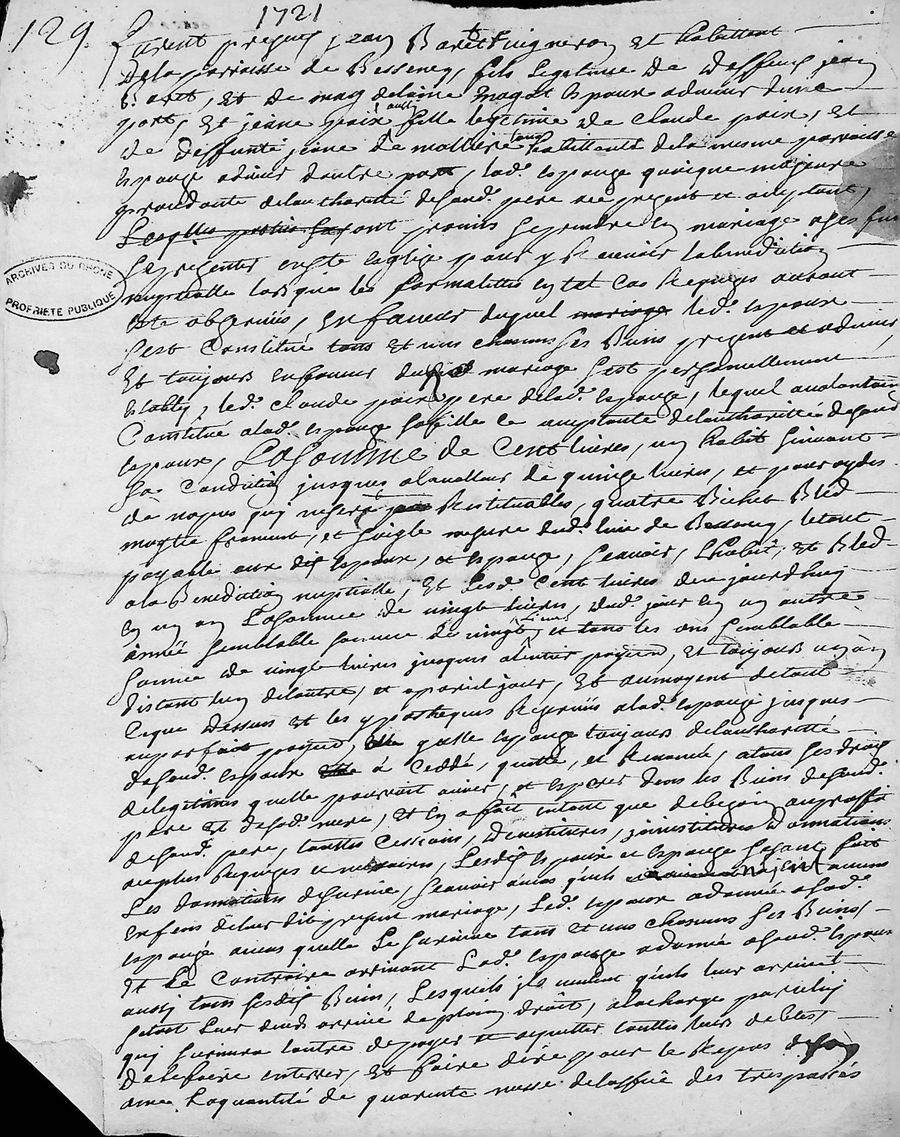 1721
129.
furent presens jean Baret vigneron et habittant
de la parroisse de Bessenay, fils legitime de deffeunt jean
Baret, et de magdelaine magat espoux advenir dune
part, et jeane poix aussi fille legitime de Claude poix, et
de deffunte jeane de mollière tous habittants de la mesme parroisse
espouze advenir dautre part, lad. espouze quoique majeure
procedante de lauthorité de sond. pere icy present et acceptant,
Lesqlles parties ont promis se prendre en mariage et se
presenter en ste esglize pour y recevoir la benediction
nuptialle lorsque les formalittes en tel cas requizes auront
este observées, en faveur duquel mariage led. espoux
sest Constitué tous et uns chacuns ses Biens present et advenir
Et toujours en faveur dud. mariage sest personnellement
establÿ, led. claude poix pere de lad. espouze, lequel
Constitué a lad. espouze sa fille ce acceptante de lauthoritté de sond.
espoux, La somme de Cent livres, un habit suivant
sa Condition jusques a la valleur de quinze livres, et pour aydes
de nopces qui ne sera pas Restituables, quatre Bichet Bled
moytié froment, et seigle mesure dud. lieu de Bessenay, le tout
payable aux dis espoux, et espouze, sçavoir, Lhabit, et Bled
a la Benediction nuptialle, Et lesd. Cent livres de ce jourdhuy
en un an La somme de vingt livres, dud. jour en un autre
année semblable somme de vingt livres et tous les ans semblable
somme de vingt livres jusques a lentier payem, et toujours un an
distant lun de lautre, et a pareil jour, Et aumoyent de tout
Ceque dessus et les ypotheques Reservées a lad. espouze jusques
au parfait payem, elle espouze toujours de lauthorité
de sond. espoux à Ceddé, quitté, et Renoncé, a tous ses droits
de legitimes quelle pourroit avoir, et esperer dans les Biens de sond.
pere et de sad. mere, et en a fait intant que de besoin au proffit
de sond. pere, touttes Cessions, demissions,
au plus Requizes et necessaires, Lesdis espoux et espouze se sont fait
Les donnations de survie, sçavoir au cas quils nayent aucuns
enfens de leur dit present mariage, Led. espoux a donné a sad.
espouze au cas quelle Le survive tous et uns chacuns ses Biens,
Et Le Contraire arrivant Lad. espouze a donné a sond. espoux
aussi tous sesdis Biens, Lesquels ils veulent quils leur arrivent
soient Leur deuds arrivé de plain droit, a la charge par celuy
qui survivra lautre de payer et aquitter touttes leurs debtes,
de le faire enterrer, Et faire dire pour le Repos de son
ame La quantité de quarente messe de loffice des trespassés
ARCHIVES DU RHONE
PROPRIETE PUBLIQUE